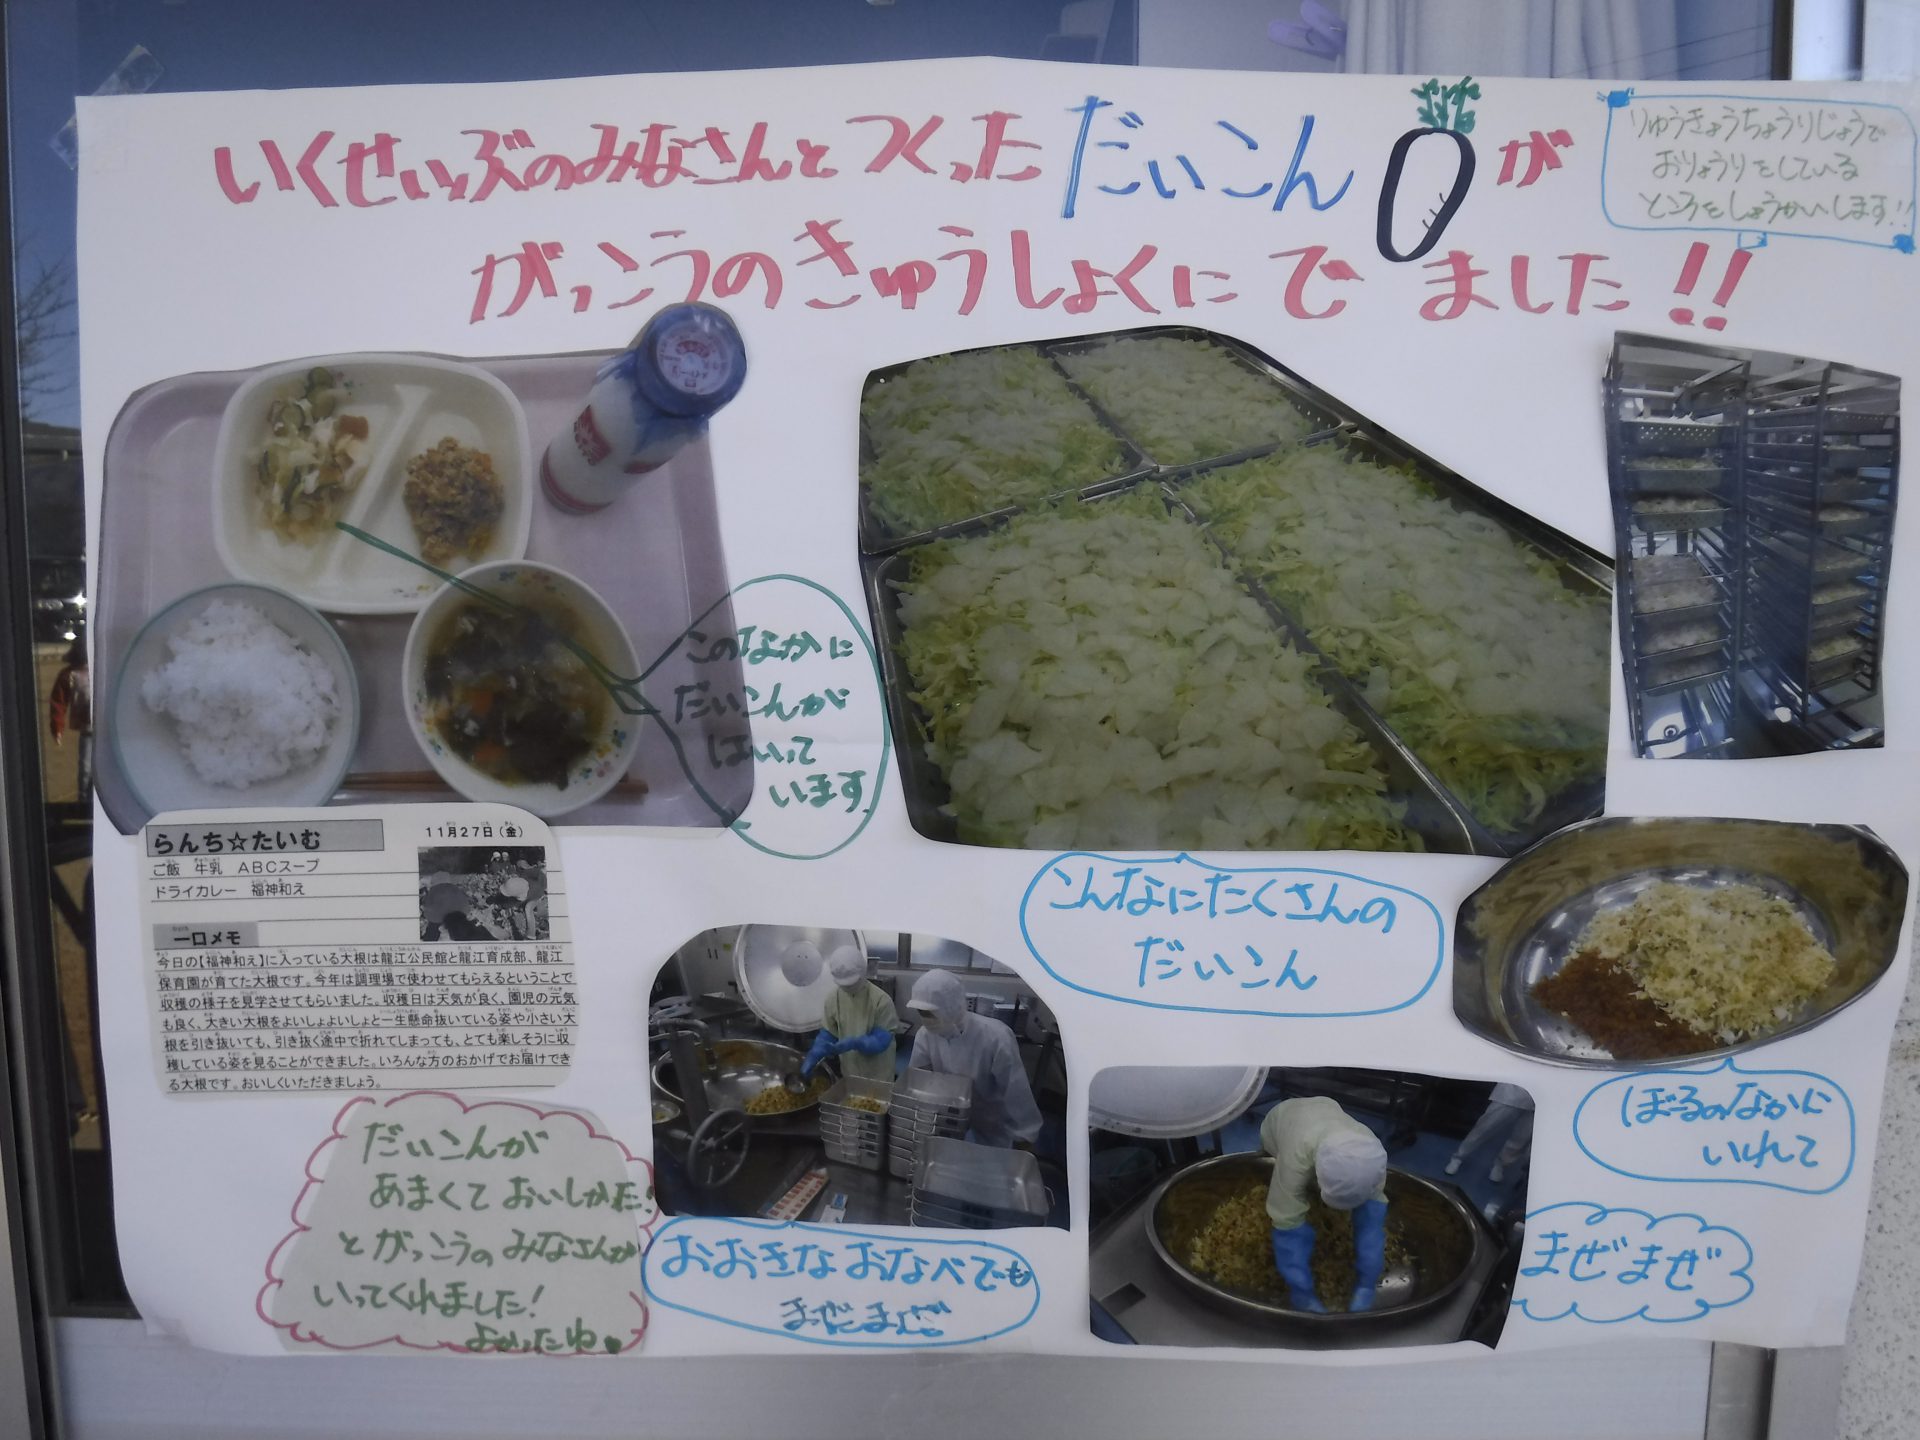 いくせいぶのみなさんとつくっただいこんが
がっこうのきゅうしょくにでました!!
りゅうきょうちょうりじょうで
おりょうりをしている
ところをしょうかいします!!
このなかに
だいこんが
はいって
います
らんち☆たいむ
11月27日(金)
ご飯 牛乳 ABCスープ
ドライカレー 福神和え
一口メモ
今日の【福神和え】に入っている大根は龍江公民館と龍江育成部、龍江
保育園が育てた大根です。今年は調理場で使わせてもらえるということで
収穫の様子を見学させてもらいました。収穫日は天気が良く、園児の元気
も良く、大きい大根をよいしょよいしょと一生懸命抜いている姿や小さい大
根を引き抜いても、引き抜く途中で折れてしまっても、とても楽しそうに収
穫している姿を見ることができました。いろんな方のおかげでお届けでき
る大根です。おいしくいただきましょう。
こんなにたくさんの
だいこん
ぼーるのなかに
いれて
まぜまぜ
おおきなおなべでも
まぜまぜ
だいこんが
あまくておいしかった!
とがっこうのみなさんが
いってくれました!
よかったね